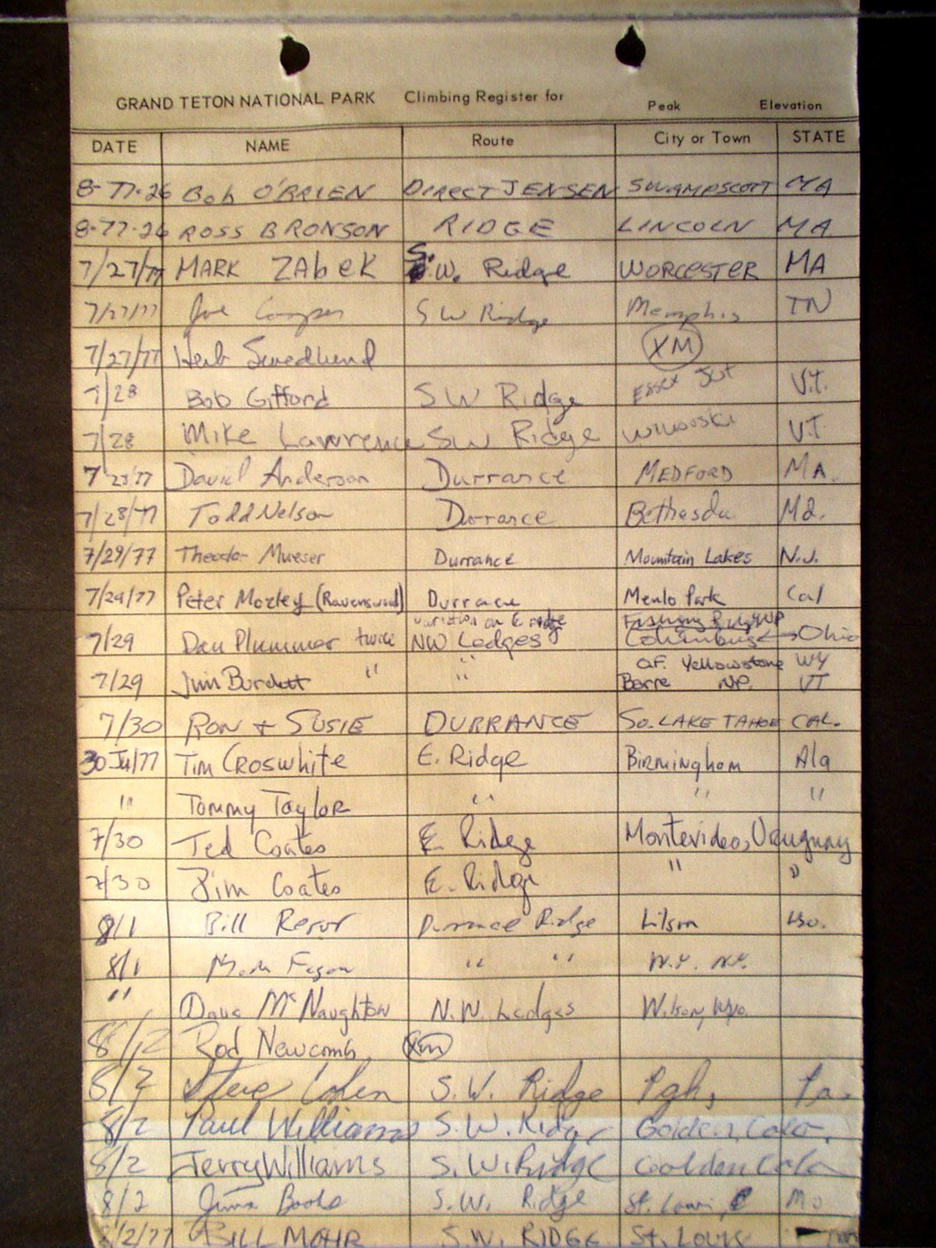 GRAND TETON NATIONAL PARK Climbing Register for Peak Elevation
DATE NAME Route City or Town STATE
8-77-26 Bob O'BRIEN DIRECT JENSEN SWAMPSCOTT MA
8-77-26 ROSS BRONSON RIDGE LINCOLN MA
7/27/77 MARK ZABEK S.W. Ridge WORCESTER MA
7/27/77 Joe Cooper SW Ridge Memphis TN
7/27/77 Herb Swedlund XM
7/28 Bob Gifford SW Ridge Essex Jct VT.
7/28 Mike Lawrence SW Ridge Winooski VT
7 David Anderson Durrance MEDFORD MA.
7/28/77 Todd Nelson Durrance Bethesda Md.
7/29/77 Theodor Mueser Durrance Mountain Lakes N.J.
7/29/77 Peter Moxley (Ravenswood) Durrance Menlo Park Cal
variation on E ridge Fishing Bridge
7/29 Dan Plummer twice NW Ledges Columbus Ohio
of Yellowstone WY
7/29 Jim Burdett " " Barre NP. VT
7/30 RON + SUSIE DURRANCE SO. LAKE TAHOE CAL.
30 Jul/77 TIM CROSWHITE E. Ridge Birmingham Ala
" Tommy Taylor " " "
7/30 Ted Coates E Ridge Montevideo, Uruguay
7/30 Jim Coates E. Ridge " "
8/1 Bill Durrance Ridge
8/1 " "
" Dave McNaughton N.W. Ledges Wilson, Wyo.
8/2 Rod Newcomb XM
8/2 Steve Cohen S.W. Ridge Pgh, Pa.
8/2 Paul Williams S.W. Ridge Golden, Colo.
8/2 Jerry Williams S.W. Ridge Golden Colo
8/2 S.W. Ridge St. Louis, Mo
8/2/77 BILL MOHR S.W. RIDGE St. Louis